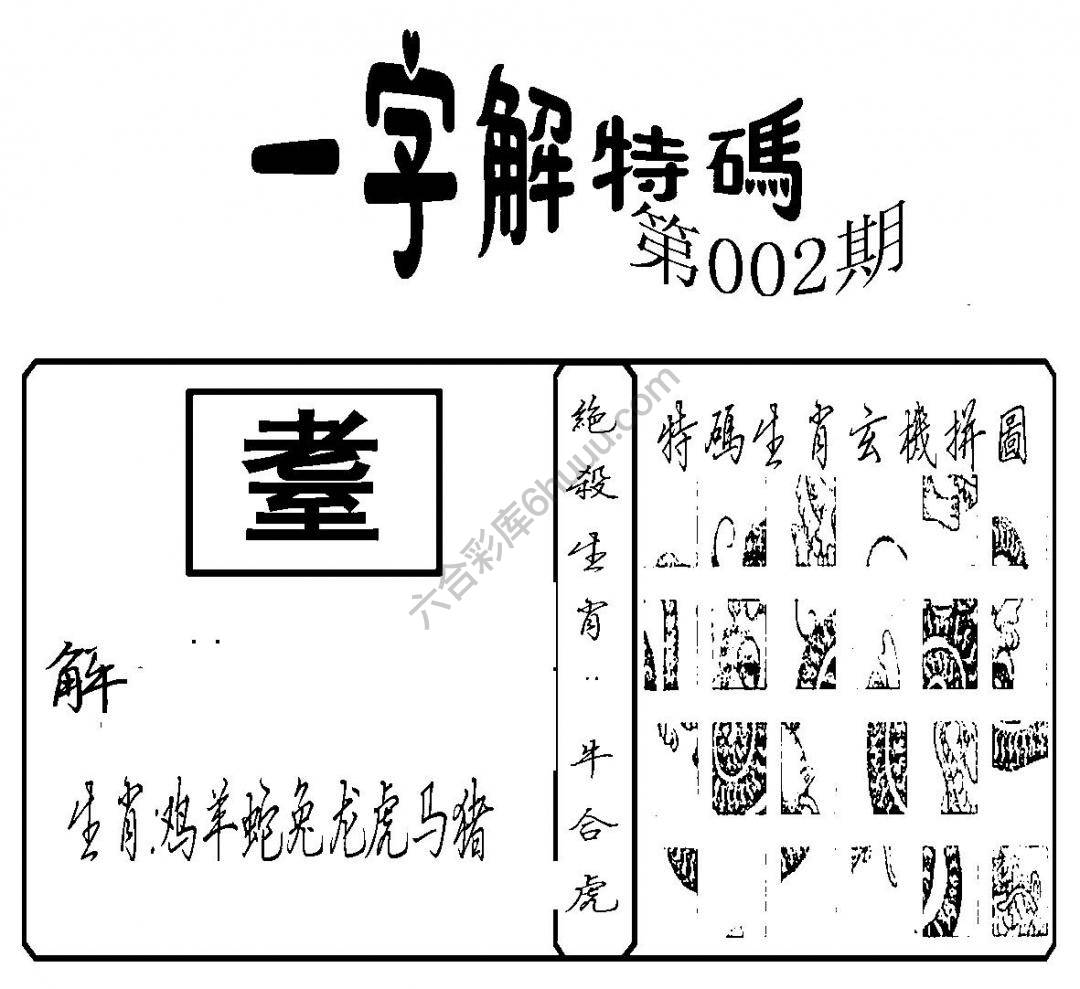 一字解特碼
第002期
耋
解
生肖:鸡羊蛇兔龙虎马猪
絶殺生肖:牛合虎
特碼生肖玄機拼圖
六合彩库6huuu.com